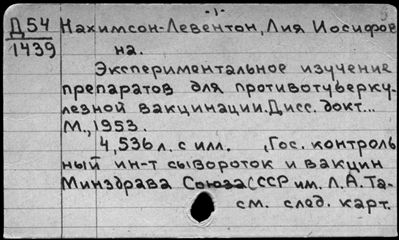 -1-
Д54
1439
Нахимсон-Левентон, Лия Иосифов
на.
Экспериментальное изучение
препаратов для противотуберку-
лезной вакцинации. Дисс. докт...
М., 1953.
4, 536 л. с илл. , Гос. контроль
ный ин-т сывороток и вакцин
Минздрава Союза ССР им. Л.А. Та-
см. след. карт.